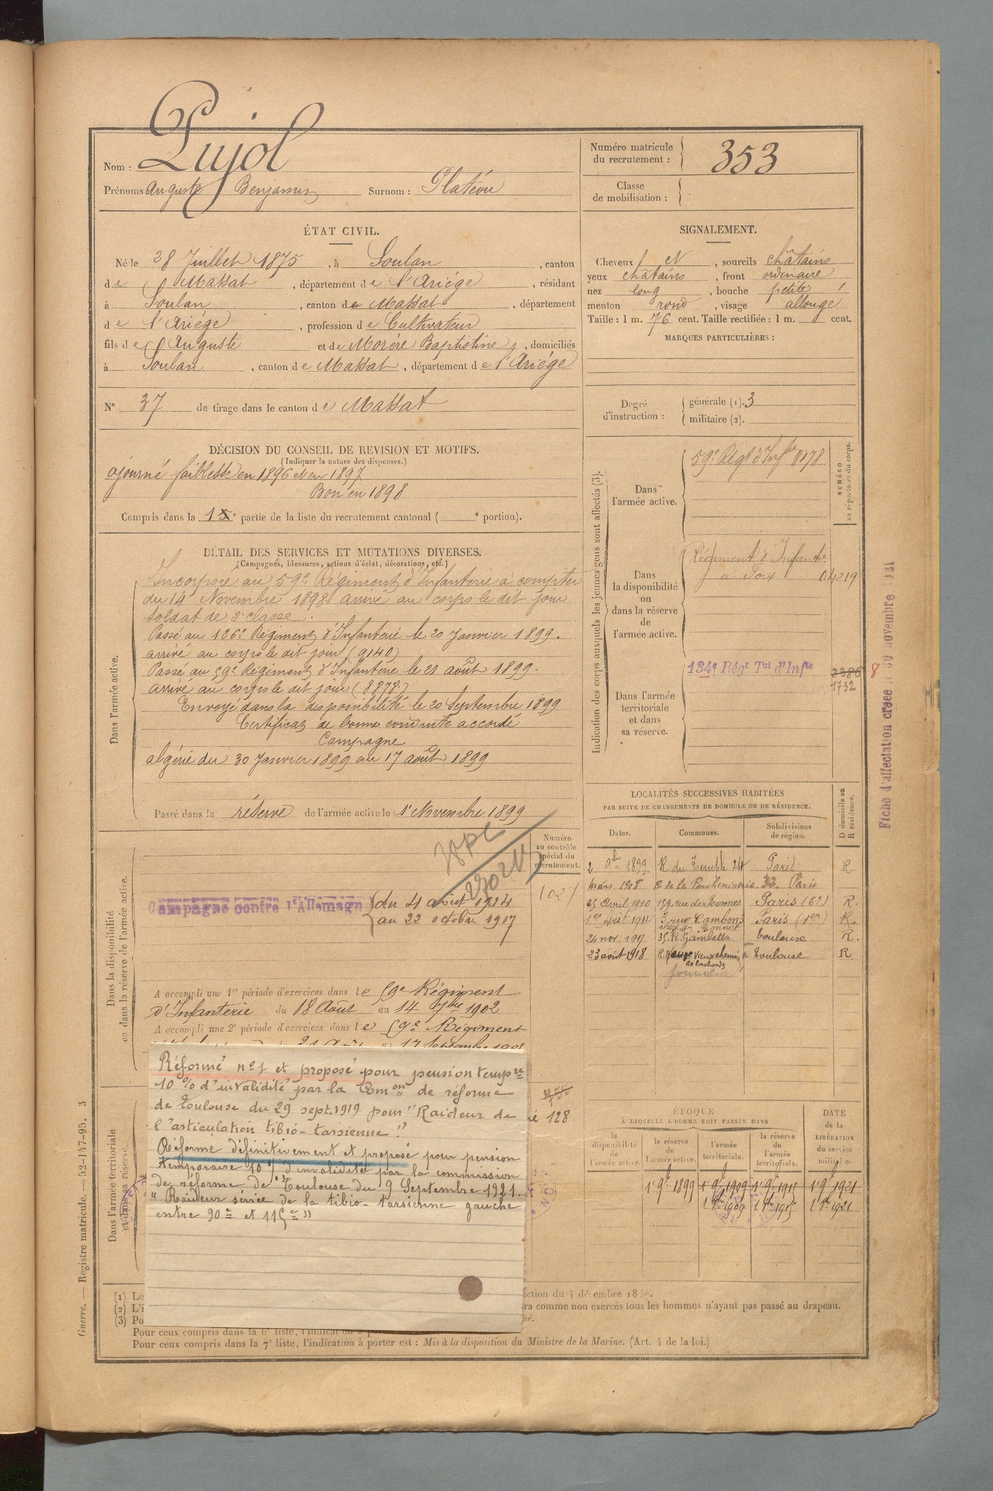 Pujol
Nom :
Prénoms Auguste Benjamin Surnom : Platéou
Numéro matricule
du recrutement : 353
Classe
de mobilisation :
ÉTAT CIVIL.
Né le 28 Juillet 1875, à Soulan, canton
de Massat, département de l'Ariége, résidant
à Soulan, canton de Massat, département
de l'Ariége, profession de Cultivateur
fils de Auguste et de Morère Baptistine, domiciliés
à Soulan, canton de Massat, département de l'Ariége
N° 37 de tirage dans le canton de Massat
SIGNALEMENT.
Cheveux et, sourcils châtains
yeux châtains, front ordinaire
nez long, bouche petite
menton rond, visage allongé
Taille : 1 m. 76 cent. Taille rectifiée : 1 m. cent.
MARQUES PARTICULIÈRES :
Degré
d'instruction :
générale (1). 3
militaire (2).
DÉCISION DU CONSEIL DE REVISION ET MOTIFS.
(Indiquer la nature des dispenses.)
ajourné faiblesse en 1896 et en 1897
Bon en 1898
Compris dans la 1e partie de la liste du recrutement cantonal ( e portion).
DÉTAIL DES SERVICES ET MUTATIONS DIVERSES.
(Campagnes, blessures, actions d'éclat, décorations, etc.)
Dans l'armée active.
Incorporé au 59e Régiment d'Infanterie à compter
du 14 Novembre 1898 arrivé au corps le dit jour
soldat de 2e classe.
Passé au 126e Régiment d'Infanterie le 20 Janvier 1899.
arrivé au corps le dit jour (9140)
Passé au 59e Régiment d'Infanterie le 21 août 1899.
arrivé au corps le dit jour (8878)
Envoyé dans la disponibilité le 20 Septembre 1899
Certificat de bonne conduite accordé
Campagne
algérie du 30 Janvier 1899 au 17 août 1899
Passé dans la réserve de l'armée active le 1er Novembre 1899
Indication des corps auxquels les jeunes gens sont affectés (3).
NUMÉRO
au répertoire du corps.
Dans
l'armée active.
59e Régt d'Infie 8178
Dans
la disponibilité
ou
dans la réserve
de
l'armée active.
Régiment d'Infanterie
à Foix 04219
Dans l'armée
territoriale
et dans
sa réserve.
134e Régt Tal d'Infie
1732
8
Fiche d'affectation créée le 30 novembre 1921
Dans la disponibilité
ou dans la réserve de l'armée active.
Numéro
au contrôle
spécial du
recrutement.
1027
Campagne contre l'Allemagne
du 4 août 1914
au 22 octobre 1917
A accompli une 1re période d'exercices dans le 59e Régiment
d'Infanterie du 18 Août au 14 7bre 1902
A accompli une 2e période d'exercices dans le 59e Régiment
LOCALITÉS SUCCESSIVES HABITÉES
PAR SUITE DE CHANGEMENTS DE DOMICILE OU DE RÉSIDENCE.
Dates.
Communes.
Subdivisions
de région.
D domicile ou
R résidence.
1899 R. du Temple 24 Paris R
mars 1908 Paris
25 Avril 1910 159 rue de Rennes Paris (6e) R.
1911 3 rue Cambon Paris (1er) R.
24 nov. 1917 35 R. Gambetta Toulouse R.
23 août 1918 Toulouse R
Dans l'armée territoriale
et dans sa réserve.
Réformé n° 1 et proposé pour pension tempre
10 % d'invalidité par la Comon de réforme
de Toulouse du 29 sept. 1919 pour "Raideur de
l'articulation tibio-tarsienne"
Réforme définitivement et proposé pour pension
temporaire 10 % d'invalidité par la commission
de réforme de Toulouse du 9 Septembre 1921.
"Raideur serrée de la tibio-tarsienne gauche
entre 90° et 115°"
128.
ÉPOQUE
A LAQUELLE L'HOMME DOIT PASSER DANS
DATE
DE LA
LIBÉRATION
DU SERVICE
militaire.
la
disponibilité
de
l'armée active.
la réserve
de
l'armée active.
l'armée
territoriale.
la réserve
de
l'armée
territoriale.
1 9e 1899 1 9e 1909 1 9e 1915 1 9e 1921
1 8e 1909 1 8e 1915 1 8e 1921
(1) Le
(2) L'i
(3) Po
ra comme non exercés tous les hommes n'ayant pas passé au drapeau.
Pour ceux compris dans la 6e liste, l'indication à porter
Pour ceux compris dans la 7e liste, l'indication à porter est : Mis à la disposition du Ministre de la Marine. (Art. 4 de la loi.)
Guerre. — Registre matricule. 52-147-95. 3